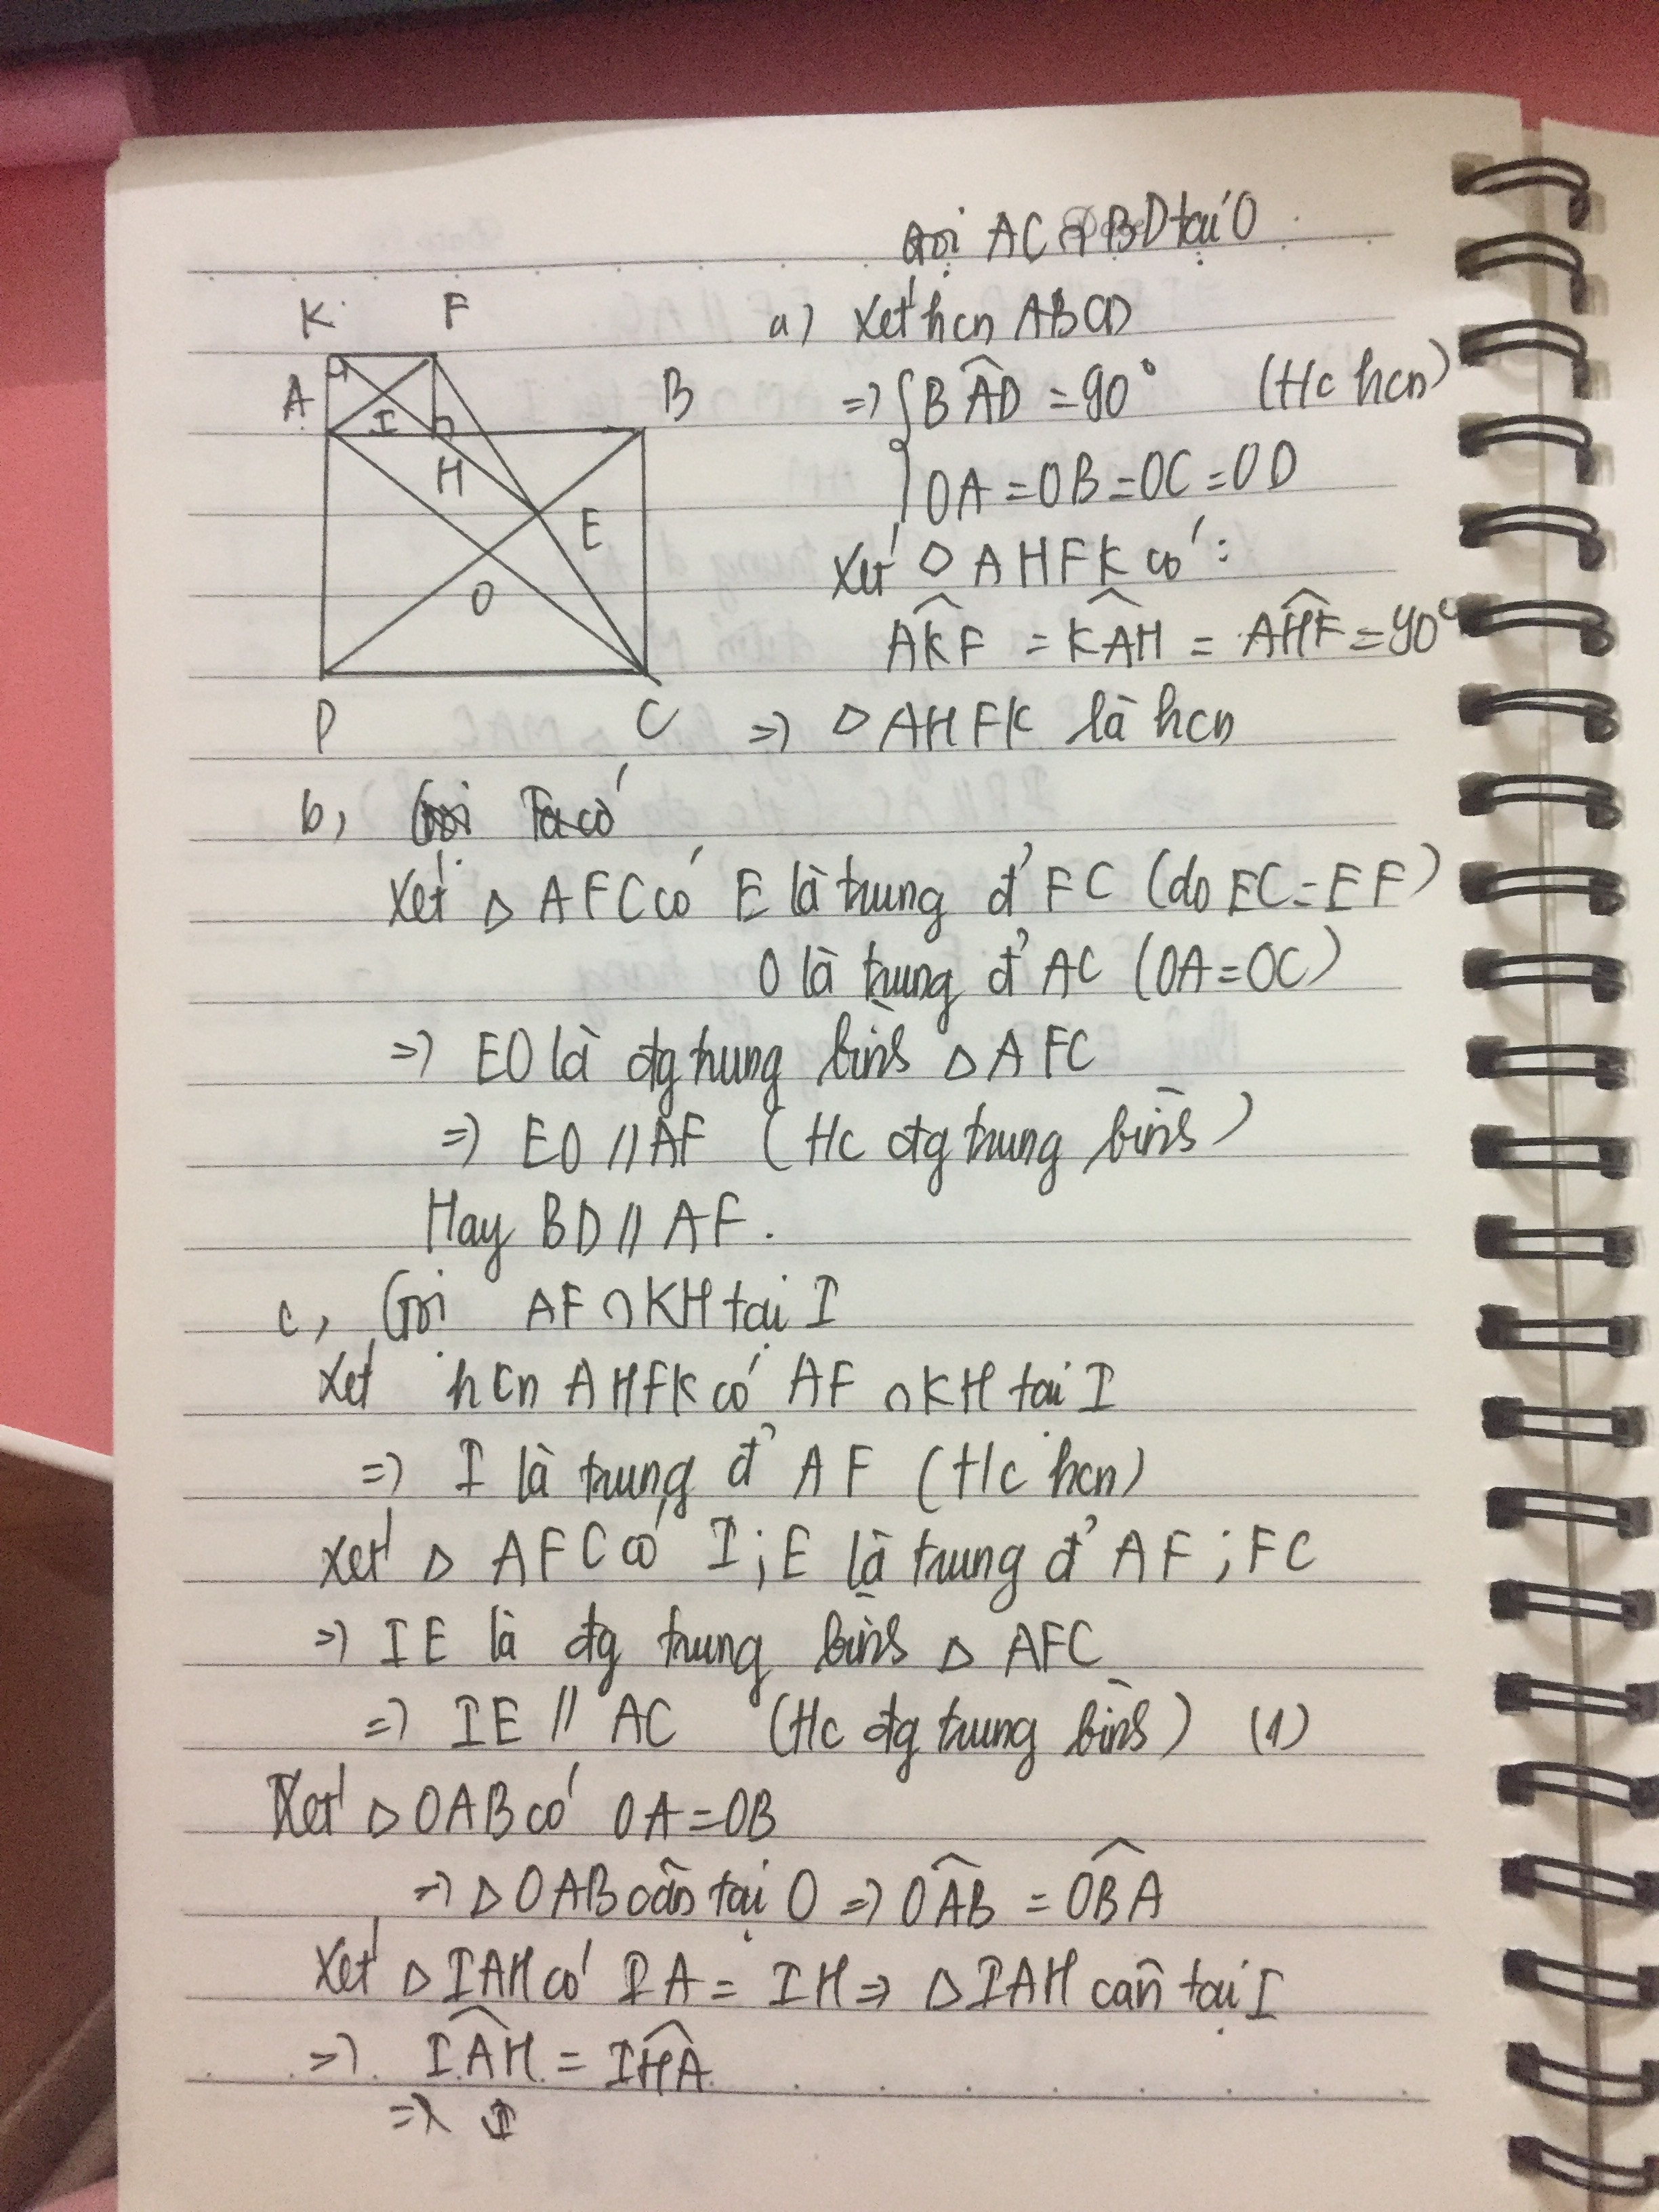 Gọi AC ∩ BD tại O
K F
A I B
H
E
O
D C
a) Xét hcn ABCD
=> { BÂD = 90° (t/c hcn)
OA = OB = OC = OD
Xét ◇ AHFK có:
AK̂F = KÂH = AĤF = 90°
=> ◇ AHFK là hcn
b, Ta có
Xét △ AFC có E là trung đ' FC (do EC = EF)
O là trung đ' AC (OA = OC)
=> EO là đg trung bình △ AFC
=> EO // AF (t/c đg trung bình)
Hay BD // AF.
c, Gọi AF ∩ KH tại I
Xét hcn AHFK có AF ∩ KH tại I
=> I là trung đ' AF (t/c hcn)
Xét △ AFC có I ; E là trung đ' AF ; FC
=> IE là đg trung bình △ AFC
=> IE // AC (t/c đg trung bình) (1)
Xét △ OAB có OA = OB
=> △ OAB cân tại O => OÂB = OB̂A
Xét △ IAH có IA = IH => △ IAH cân tại I
=> IÂH = IĤA